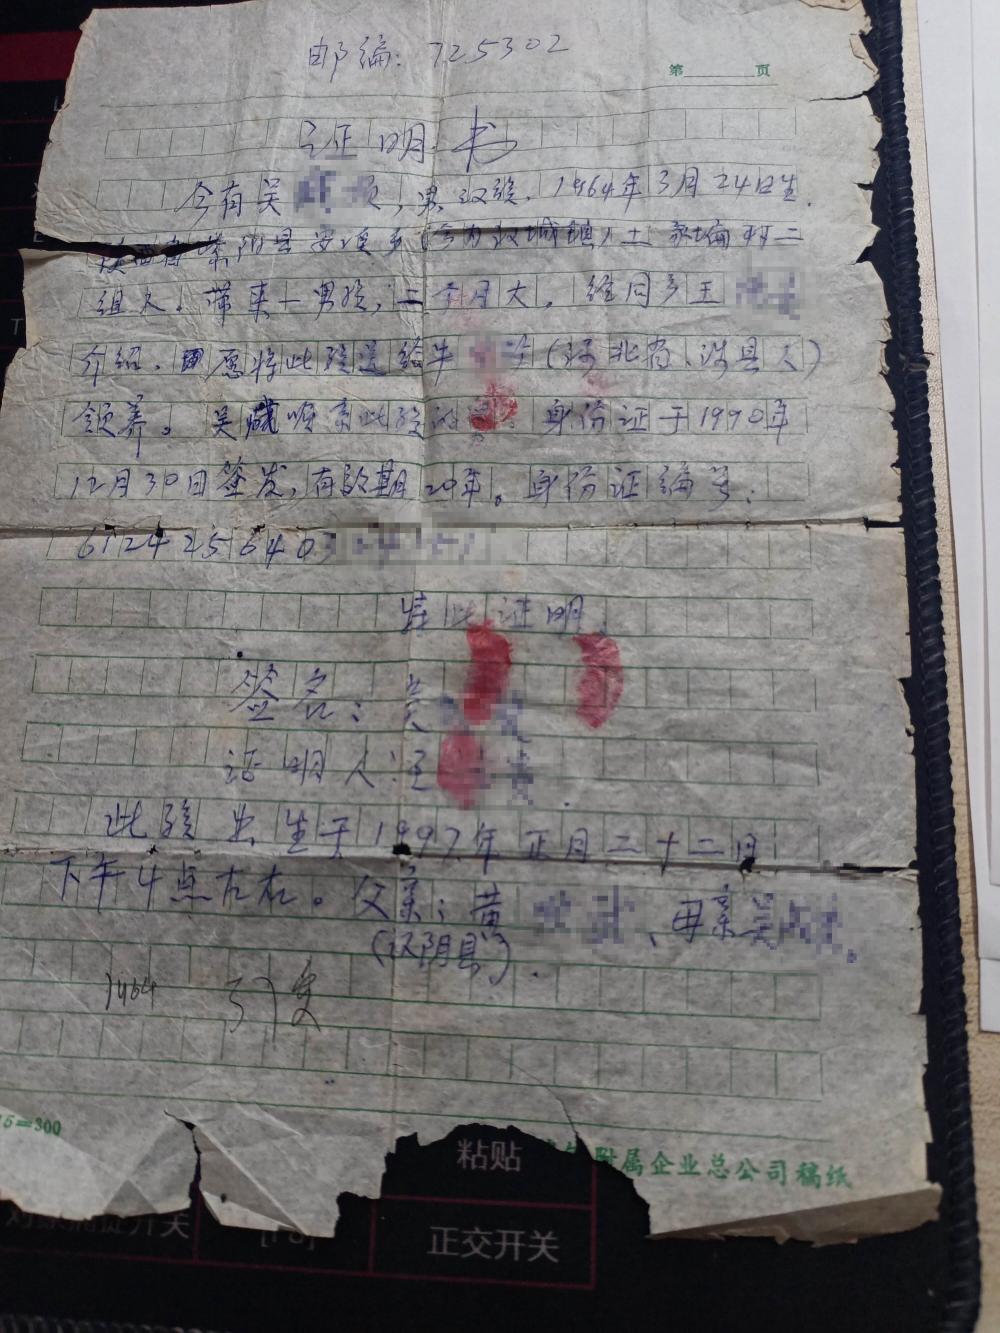 邮编：725302
第 页
证明书
今有吴 顺，男汉族．1964年3月24日生．
陕西省紫阳县安 乡（今为汉城镇）土 村二
组人．带来一男孩，二个月大．经同乡王
介绍．愿将此孩送给牛 （河北省、涉县人）
领养。吴 顺系此孩 身份证于1990年
12月30日签发，有效期20年。身份证编号：
6124256403
特此证明．
签名：吴
证明人：王
此孩出生于1997年正月二十二日
下午4点左右。父亲：黄 、母亲吴 。
（汉阴县）．
1964
15=300
附属企业总公司稿纸
粘贴
正交开关